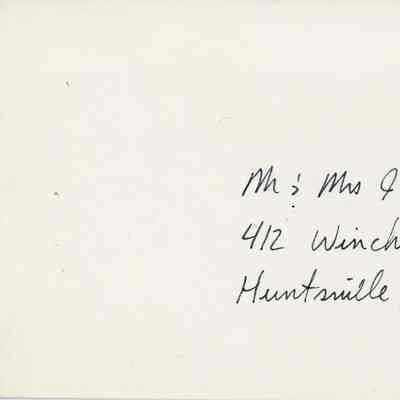 Mr & Mrs J
412 Winch
Huntsville